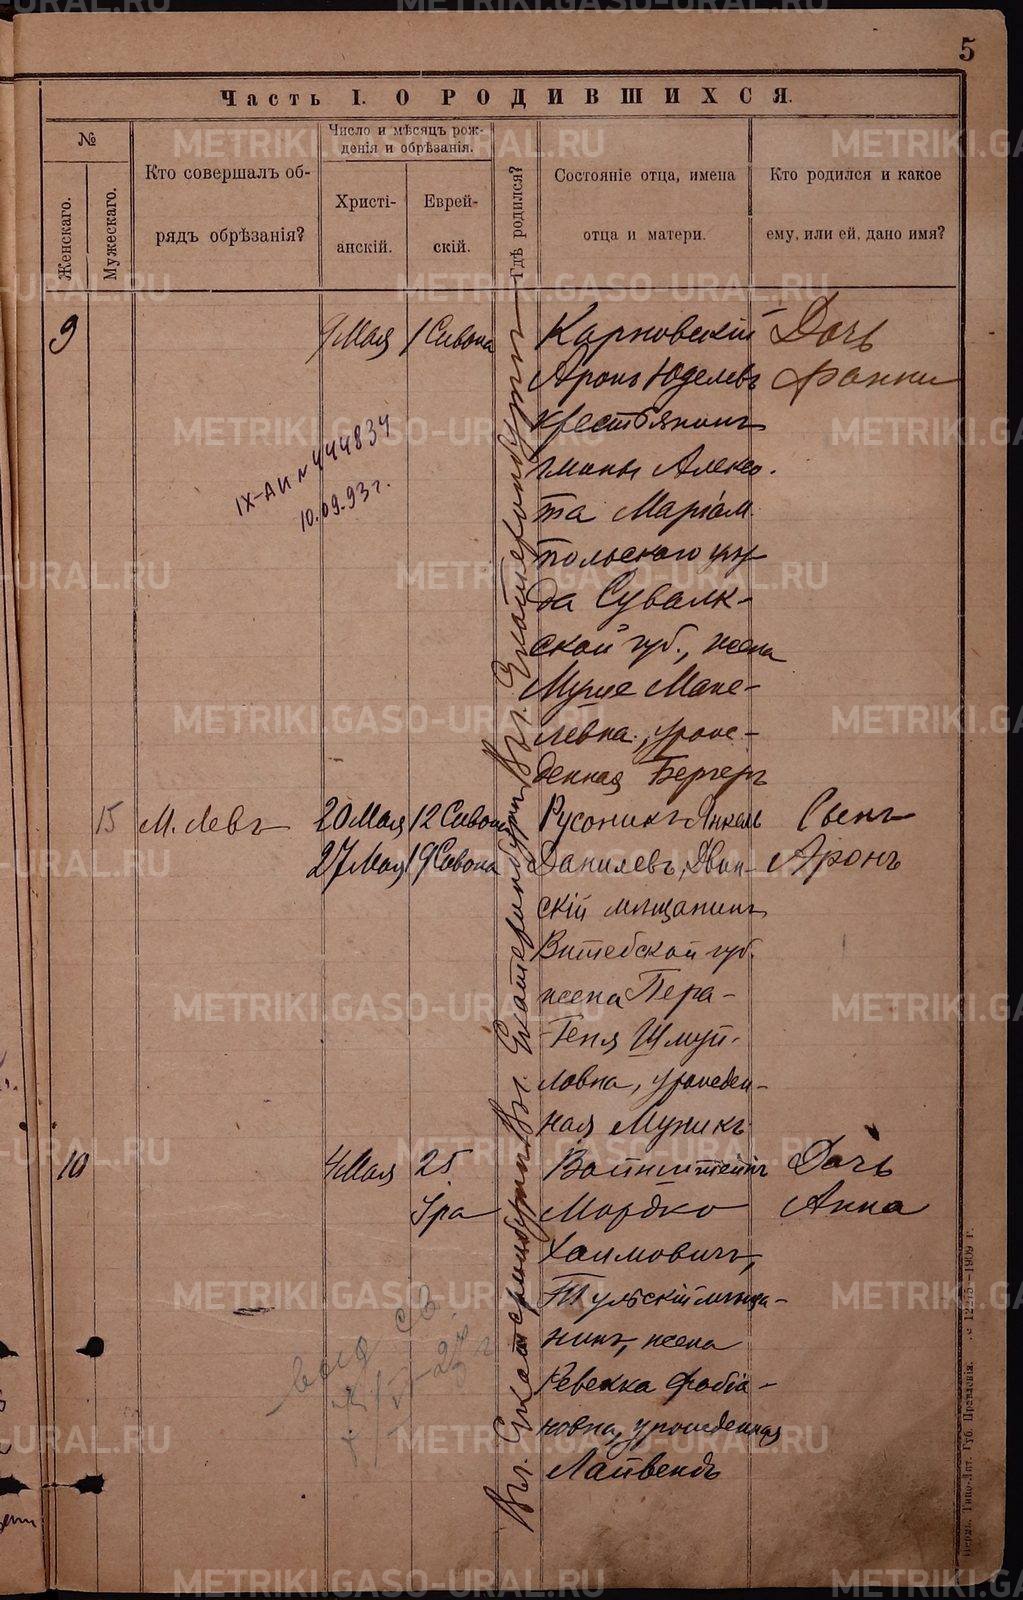 5
Часть I. О РОДИВШИХСЯ.
№
Женскаго.
Мужескаго.
Кто совершалъ об-
рядъ обрѣзанія?
Число и мѣсяцъ рож-
денія и обрѣзанія.
Христі-
анскій.
Еврей-
скій.
Гдѣ родился?
Состояніе отца, имена
отца и матери.
Кто родился и какое
ему, или ей, дано имя?
9
9 Мая
1 Сивона
Въ г. Екатеринбургѣ
Карновскій
Аронъ Юделевъ
крестьянинъ
гмины Алексо-
та Маріам
польскаго уѣз
да Сувалк-
ской губ., жена
Муше Мане-
левна, урож-
денная Бергеръ
Дочь
Фанни
IX-АИ № 444834
10.09.93 г.
15
М. Левъ
20 Мая
27 Мая
12 Сивона
19 Сивона
Въ г. Екатеринбургѣ
Русоникъ Янкель
Данилевъ, Двин-
скій мѣщанинъ
Витебской губ.
жена Пера-
Геня Шмуй-
ловна, урожден-
ная Муникъ
Сынъ
Аронъ
10
4 Мая
25
Iра
Въ г. Екатеринбургѣ
Вайнштейнъ
Мордко
Хаимовичъ,
Тульскій мѣща-
нинъ, жена
Ревекка Фабіа-
новна, урожденная
Лайвендъ
Дочь
Анна
выд св.
Пермь. Типо-Лит. Губ. Правленія.
1909 г.
METRIKI.GASO-URAL.RU